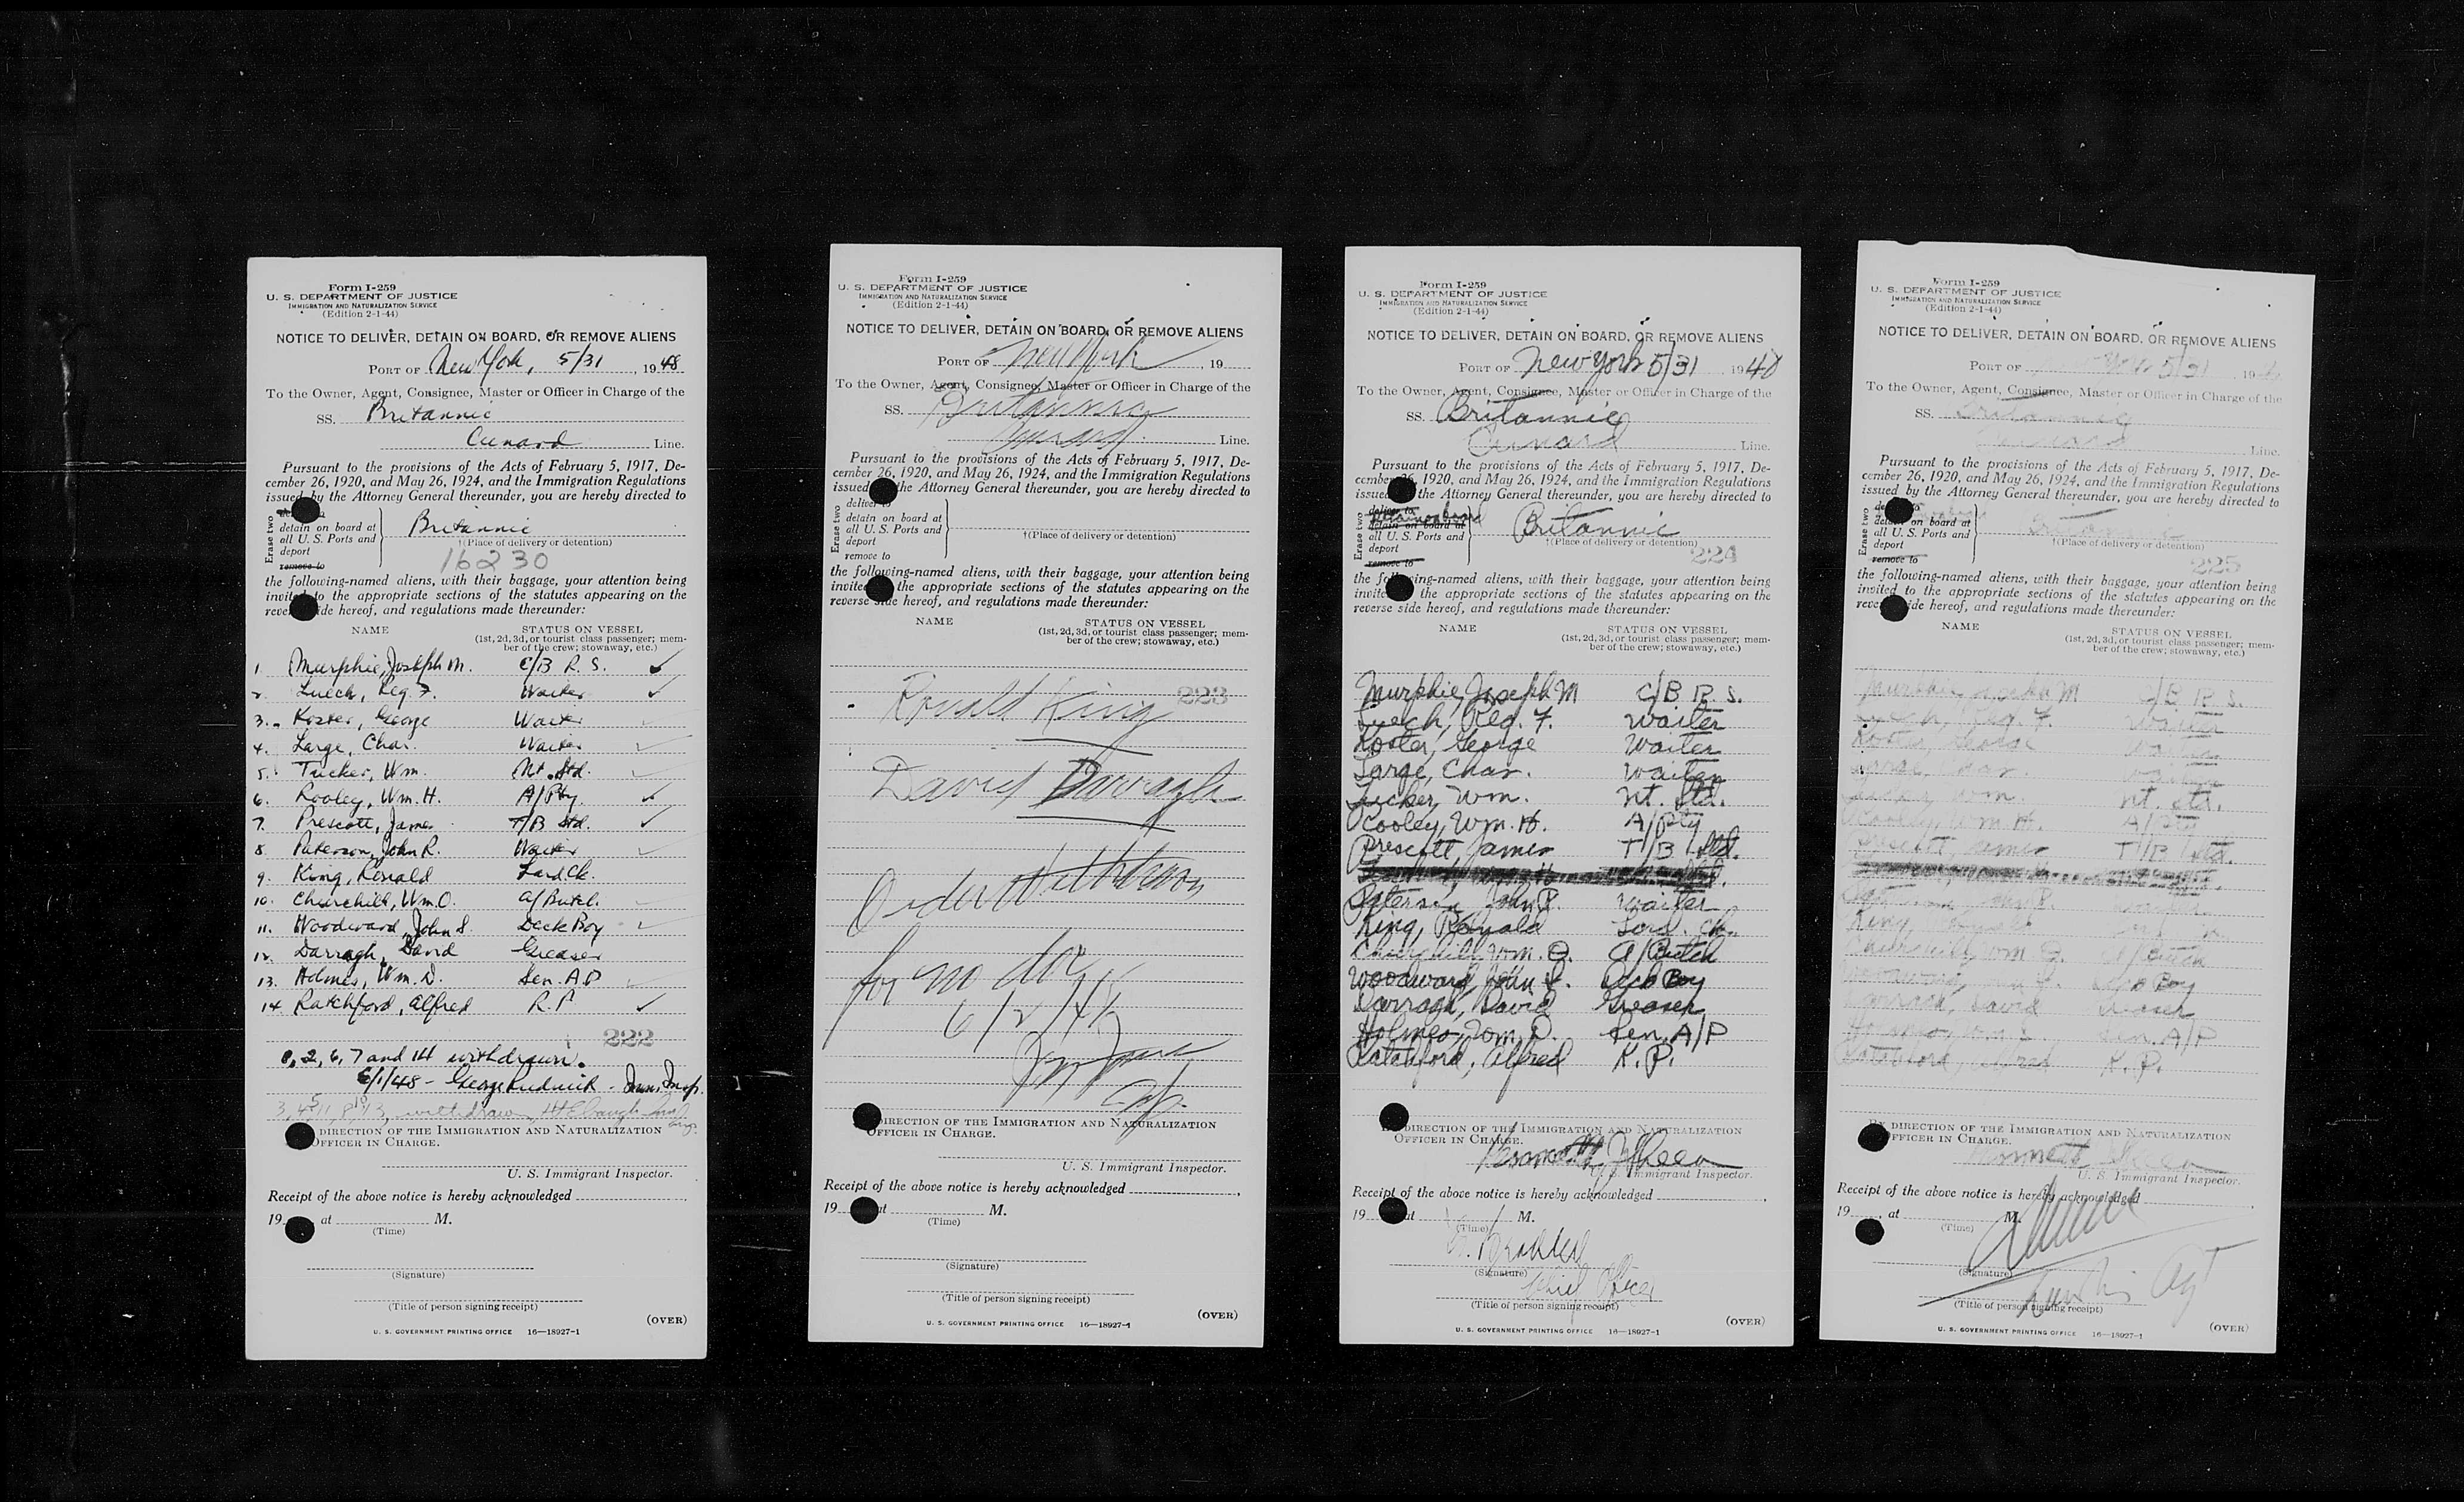 Form I-259
U. S. DEPARTMENT OF JUSTICE
IMMIGRATION AND NATURALIZATION SERVICE
(Edition 2-1-44)
NOTICE TO DELIVER, DETAIN ON BOARD, OR REMOVE ALIENS
PORT OF New York, 5/31, 1948
To the Owner, Agent, Consignee, Master or Officer in Charge of the
SS. Britannic
Cunard Line.
Pursuant to the provisions of the Acts of February 5, 1917, De-
cember 26, 1920, and May 26, 1924, and the Immigration Regulations
issued by the Attorney General thereunder, you are hereby directed to
Erase two
detain on board at
all U. S. Ports and
deport
remove to
Britannic
†(Place of delivery or detention)
16230
the following-named aliens, with their baggage, your attention being
invited to the appropriate sections of the statutes appearing on the
reverse side hereof, and regulations made thereunder:
NAME STATUS ON VESSEL
(1st, 2d, 3d, or tourist class passenger; mem-
ber of the crew; stowaway, etc.)
1. Murphie, Joseph M. C/B R. S. ✓
2. Luech, Reg. F. Waiter ✓
3. Koster, George Waiter ✓
4. Large, Char. Waiter ✓
5. Tucker, Wm. Nt. Std. ✓
6. Rooley, Wm. H. A/Pty. ✓
7. Prescott, James T/B Std. ✓
8. Paterson, John R. Waiter ✓
9. King, Ronald Lard Ck.
10. Churchill, Wm. O. A/Butch.
11. Woodward, John S. Deck Boy ✓
12. Darragh, David Greaser
13. Holmes, Wm. D. Sen. A.P ✓
14. Ratchford, Alfred R. P ✓
222
1, 2, 6, 7 and 14 withdrawn.
6/1/48 - George Rudnick - Imm. Insp.
withdrawn
DIRECTION OF THE IMMIGRATION AND NATURALIZATION
OFFICER IN CHARGE.
U. S. Immigrant Inspector.
Receipt of the above notice is hereby acknowledged
19 at M.
(Time)
(Signature)
(Title of person signing receipt)
(OVER)
U. S. GOVERNMENT PRINTING OFFICE 16—18927-1
Form I-259
U. S. DEPARTMENT OF JUSTICE
IMMIGRATION AND NATURALIZATION SERVICE
(Edition 2-1-44)
NOTICE TO DELIVER, DETAIN ON BOARD, OR REMOVE ALIENS
PORT OF New York, 19
To the Owner, Agent, Consignee, Master or Officer in Charge of the
SS. Britannic
Cunard Line.
Pursuant to the provisions of the Acts of February 5, 1917, De-
cember 26, 1920, and May 26, 1924, and the Immigration Regulations
issued the Attorney General thereunder, you are hereby directed to
Erase two
deliver to
detain on board at
all U. S. Ports and
deport
remove to
†(Place of delivery or detention)
the following-named aliens, with their baggage, your attention being
invited the appropriate sections of the statutes appearing on the
reverse side hereof, and regulations made thereunder:
NAME STATUS ON VESSEL
(1st, 2d, 3d, or tourist class passenger; mem-
ber of the crew; stowaway, etc.)
223
Ronald King
David Darragh
Order Withdrawn
for
6/2/48
DIRECTION OF THE IMMIGRATION AND NATURALIZATION
OFFICER IN CHARGE.
U. S. Immigrant Inspector.
Receipt of the above notice is hereby acknowledged
19 at M.
(Time)
(Signature)
(Title of person signing receipt)
(OVER)
U. S. GOVERNMENT PRINTING OFFICE 16—18927-1
Form I-259
U. S. DEPARTMENT OF JUSTICE
IMMIGRATION AND NATURALIZATION SERVICE
(Edition 2-1-44)
NOTICE TO DELIVER, DETAIN ON BOARD, OR REMOVE ALIENS
PORT OF New York 5/31 1948
To the Owner, Agent, Consignee, Master or Officer in Charge of the
SS. Britannic
Cunard Line.
Pursuant to the provisions of the Acts of February 5, 1917, De-
cember 26, 1920, and May 26, 1924, and the Immigration Regulations
issued the Attorney General thereunder, you are hereby directed to
Erase two
deliver to
detain on board
detain on board at
all U. S. Ports and
deport
remove to
Britannic
†(Place of delivery or detention)
224
the following-named aliens, with their baggage, your attention being
invited the appropriate sections of the statutes appearing on the
reverse side hereof, and regulations made thereunder:
NAME STATUS ON VESSEL
(1st, 2d, 3d, or tourist class passenger; mem-
ber of the crew; stowaway, etc.)
Murphie, Joseph M C/B R. S.
Luech, Reg. F. Waiter
Koster, George Waiter
Large, Char. Waiter
Tucker, Wm. Nt. Std.
Rooley, Wm. H. A/Pty
Prescott, James T/B Std.
Paterson, John R. Waiter
King, Ronald
Churchill, Wm. O. A/Butch
Woodward, John S. Deck Boy
Darragh, David Greaser
Holmes, Wm. D. Sen. A/P
Ratchford, Alfred K. P.
DIRECTION OF THE IMMIGRATION AND NATURALIZATION
OFFICER IN CHARGE.
U. S. Immigrant Inspector.
Receipt of the above notice is hereby acknowledged
19 at M.
(Time)
(Signature)
Chief Officer
(Title of person signing receipt)
(OVER)
U. S. GOVERNMENT PRINTING OFFICE 16—18927-1
Form I-259
U. S. DEPARTMENT OF JUSTICE
IMMIGRATION AND NATURALIZATION SERVICE
(Edition 2-1-44)
NOTICE TO DELIVER, DETAIN ON BOARD, OR REMOVE ALIENS
PORT OF York 5/31 19
To the Owner, Agent, Consignee, Master or Officer in Charge of the
SS. Britannic
Cunard Line.
Pursuant to the provisions of the Acts of February 5, 1917, De-
cember 26, 1920, and May 26, 1924, and the Immigration Regulations
issued by the Attorney General thereunder, you are hereby directed to
Erase two
detain on board at
all U. S. Ports and
deport
remove to
Britannic
†(Place of delivery or detention)
225
the following-named aliens, with their baggage, your attention being
invited to the appropriate sections of the statutes appearing on the
reverse side hereof, and regulations made thereunder:
NAME STATUS ON VESSEL
(1st, 2d, 3d, or tourist class passenger; mem-
ber of the crew; stowaway, etc.)
Murphie, Joseph M C/B R. S.
Luech, Reg. F. Waiter
Koster, George Waiter
Large, Char.
Tucker, Wm. Nt. Std.
Rooley, Wm. H. A/Pty
Prescott, James T/B Std.
King
Churchill, Wm. O. A/Butch
Woodward, John S. Deck Boy
Darragh, David Greaser
Holmes, Wm. D. Sen. A/P
Ratchford, Alfred K. P.
BY DIRECTION OF THE IMMIGRATION AND NATURALIZATION
OFFICER IN CHARGE.
U. S. Immigrant Inspector.
Receipt of the above notice is hereby acknowledged
19 , at M.
(Time)
(Signature)
(Title of person signing receipt)
(OVER)
U. S. GOVERNMENT PRINTING OFFICE 16—18927-1